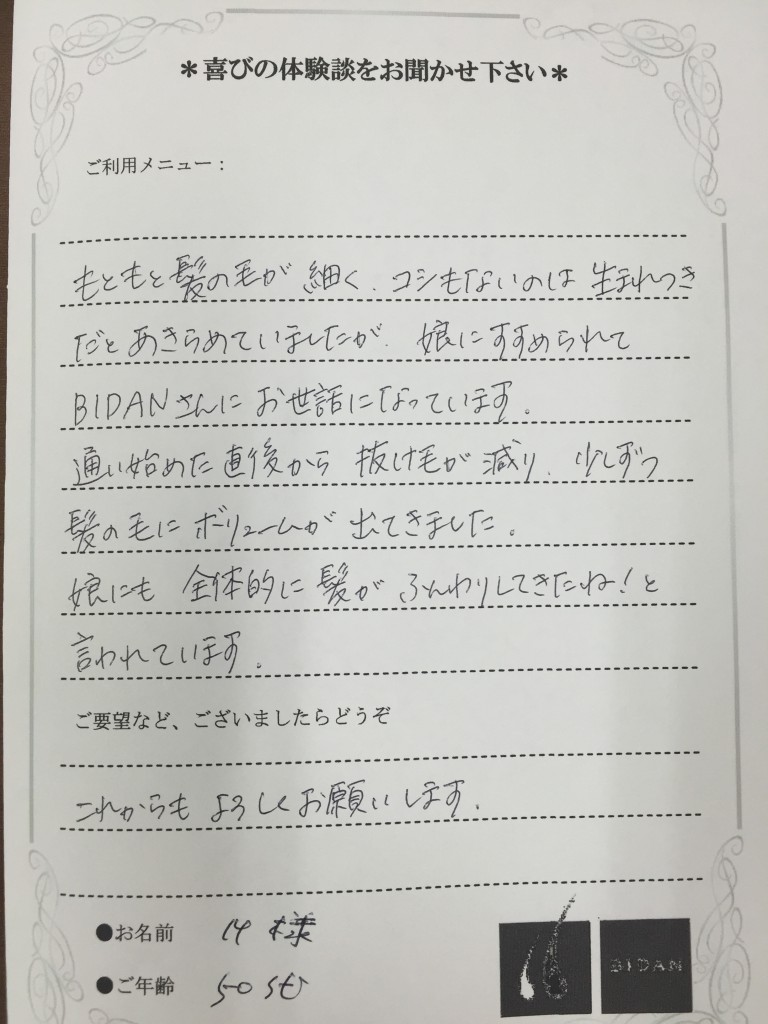 ＊喜びの体験談をお聞かせ下さい＊
ご利用メニュー：
もともと髪の毛が 細く、コシもないのは 生まれつき
だと あきらめていましたが、娘にすすめられて
BIDANさんに お世話になっています。
通い始めた直後から 抜け毛が 減り、少しずつ
髪の毛に ボリュームが 出てきました。
娘にも 全体的に 髪が ふんわりしてきたね！と
言われています。
ご要望など、ございましたらどうぞ
これからも よろしくお願いします。
●お名前 様
●ご年齢 50
BIDAN